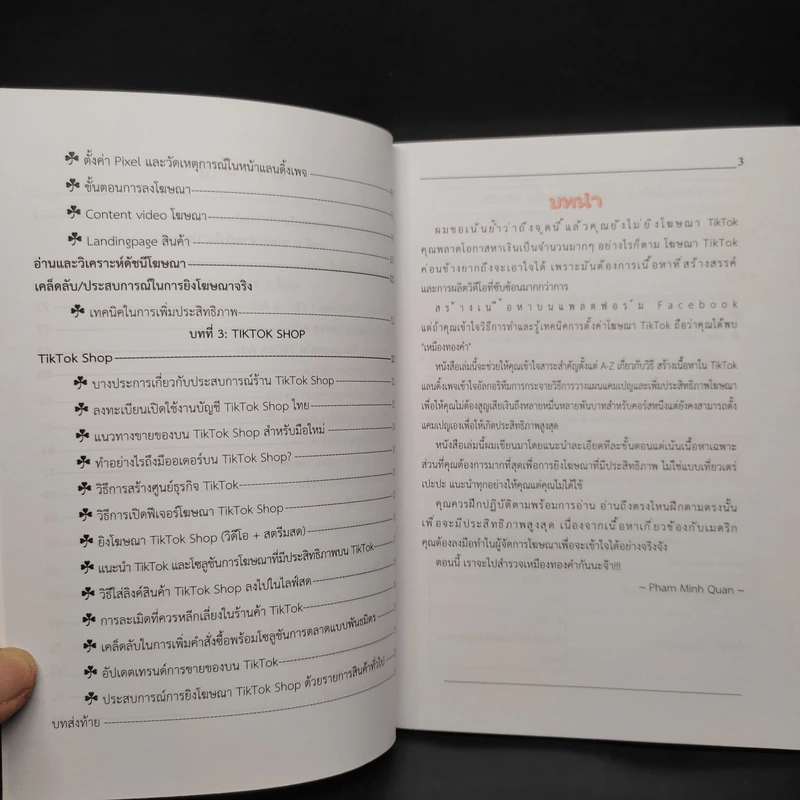 ตั้งค่า Pixel และวัดเหตุการณ์ในหน้าแลนดิ้งเพจ
ขั้นตอนการลงโฆษณา
Content video โฆษณา
Landingpage สินค้า
อ่านและวิเคราะห์ดัชนีโฆษณา
เคล็ดลับ/ประสบการณ์ในการยิงโฆษณาจริง
เทคนิคในการเพิ่มประสิทธิภาพ
บทที่ 3: TIKTOK SHOP
TikTok Shop
บางประการเกี่ยวกับประสบการณ์ร้าน TikTok Shop
ลงทะเบียนเปิดใช้งานบัญชี TikTok Shop ไทย
แนวทางขายของบน TikTok Shop สำหรับมือใหม่
ทำอย่างไรถึงมีออเดอร์บน TikTok Shop?
วิธีการสร้างศูนย์ธุรกิจ TikTok
วิธีการเปิดฟีเจอร์โฆษณา TikTok Shop
ยิงโฆษณา TikTok Shop (วิดีโอ + สตรีมสด)
แนะนำ TikTok และโซลูชันการโฆษณาที่มีประสิทธิภาพบน TikTok
วิธีใส่ลิงค์สินค้า TikTok Shop ลงไปในไลฟ์สด
การละเมิดที่ควรหลีกเลี่ยงในร้านค้า TikTok
เคล็ดลับในการเพิ่มคำสั่งซื้อพร้อมโซลูชันการตลาดแบบพันธมิตร
อัปเดตเทรนด์การขายของบน TikTok
ประสบการณ์การยิงโฆษณา TikTok Shop ด้วยรายการสินค้าทั่วไป
บทส่งท้าย
3
บทนำ
ผมขอเน้นย้ำว่าถึงจุดนี้แล้วคุณยังไม่ยิงโฆษณา TikTok
คุณพลาดโอกาสหาเงินเป็นจำนวนมากๆ อย่างไรก็ตาม โฆษณา TikTok
ค่อนข้างยากถึงจะเอาใจได้ เพราะมันต้องการเนื้อหาที่สร้างสรรค์
และการผลิตวิดีโอที่ซับซ้อนมากกว่าการ
สร้างเนื้อหาบนแพลตฟอร์ม Facebook
แต่ถ้าคุณเข้าใจวิธีการทำและรู้เทคนิคการตั้งค่าโฆษณา TikTok ถือว่าคุณได้พบ
"เหมืองทองคำ"
หนังสือเล่มนี้จะช่วยให้คุณเข้าใจสาระสำคัญตั้งแต่ A-Z เกี่ยวกับวิธี สร้างเนื้อหาใน TikTok
แลนดิ้งเพจเข้าใจอัลกอริทึมการกระจายวิธีการวางแผนแคมเปญและเพิ่มประสิทธิภาพโฆษณา
เพื่อให้คุณไม่ต้องสูญเสียเงินถึงหลายหมื่นหลายพันบาทสำหรับคอร์สหนึ่งแต่ยังคงสามารถตั้ง
แคมเปญเองเพื่อให้เกิดประสิทธิภาพสูงสุด
หนังสือเล่มนี้ผมเขียนมาโดยแนะนำละเอียดทีละขั้นตอนแต่เน้นเนื้อหาเฉพาะ
ส่วนที่คุณต้องการมากที่สุดเพื่อการยิงโฆษณาที่มีประสิทธิภาพ ไม่ใช่แบบเที่ยวเตร่
เปะปะ แนะนำทุกอย่างให้คุณแต่คุณไม่ได้ใช้
คุณควรฝึกปฏิบัติตามพร้อมการอ่าน อ่านถึงตรงไหนฝึกตามตรงนั้น
เพื่อจะมีประสิทธิภาพสูงสุด เนื่องจากเนื้อหาเกี่ยวข้องกับเมตริก
คุณต้องลงมือทำในผู้จัดการโฆษณาเพื่อจะเข้าใจได้อย่างจริงจัง
ตอนนี้ เราจะไปสำรวจเหมืองทองคำกันนะจ๊า!!!
~ Pham Minh Quan ~